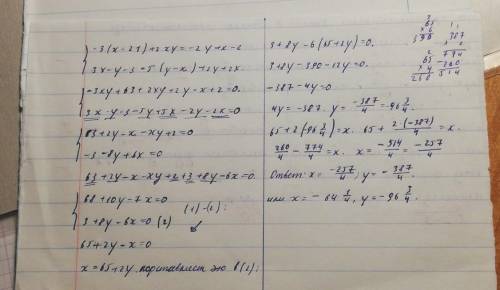 -3(x-21)+2xy=-2y+x-2
3x-y-3=5(y-x)+2y+2x
-3xy+63+2xy+2y-x+2=0
3x-y-3-5y+5x-2y-2x=0
63+2y-x-xy+2=0
-3-8y+6x=0
63+2y-x-xy+2+3+8y-6x=0
68+10y-7x=0 (1)-(2):
3+8y-6x=0 (2)
65+2y-x=0
x=65+2y. подставляем это в (2):
3+8y-6(65+2y)=0.
3+8y-390-12y=0.
-387-4y=0
4y=-387. y=-387/4=-96 3/4.
65+2(-96 3/4)=x. 65+2·(-387)/4=x.
260/4-774/4=x. x=-514/4=-257/4
Ответ: x=-257/4; y=-387/4.
или x=-64 1/4, y=-96 3/4.
65
x 6
390
387
774
65
x 4
260
774
-260
514